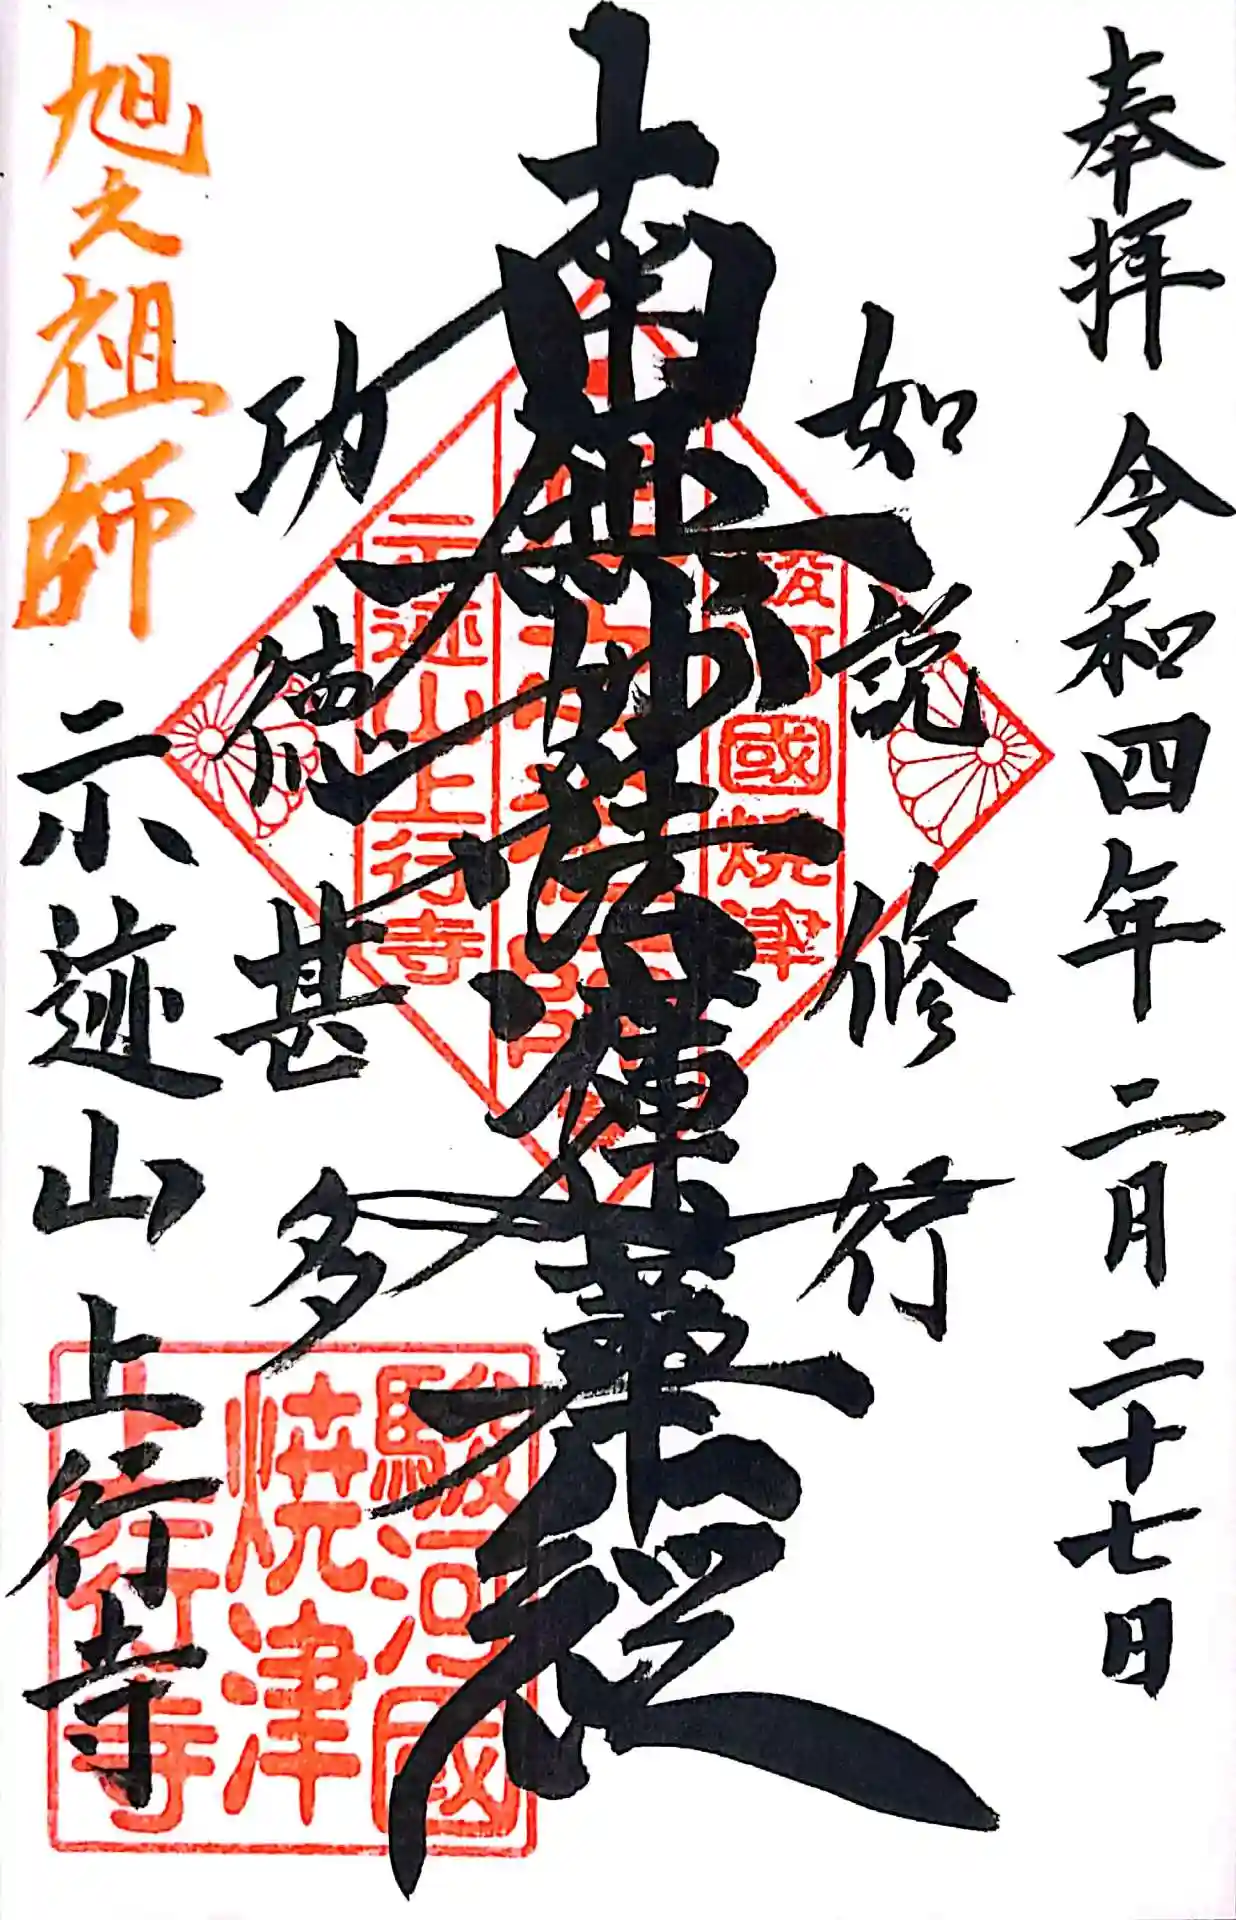 奉拝 令和四年二月二十七日
如説修行
南無妙法蓮華経
功徳甚多
旭之祖師
示迹山上行寺
國焼津
示迹山上行寺
駿河國
焼津
上行寺